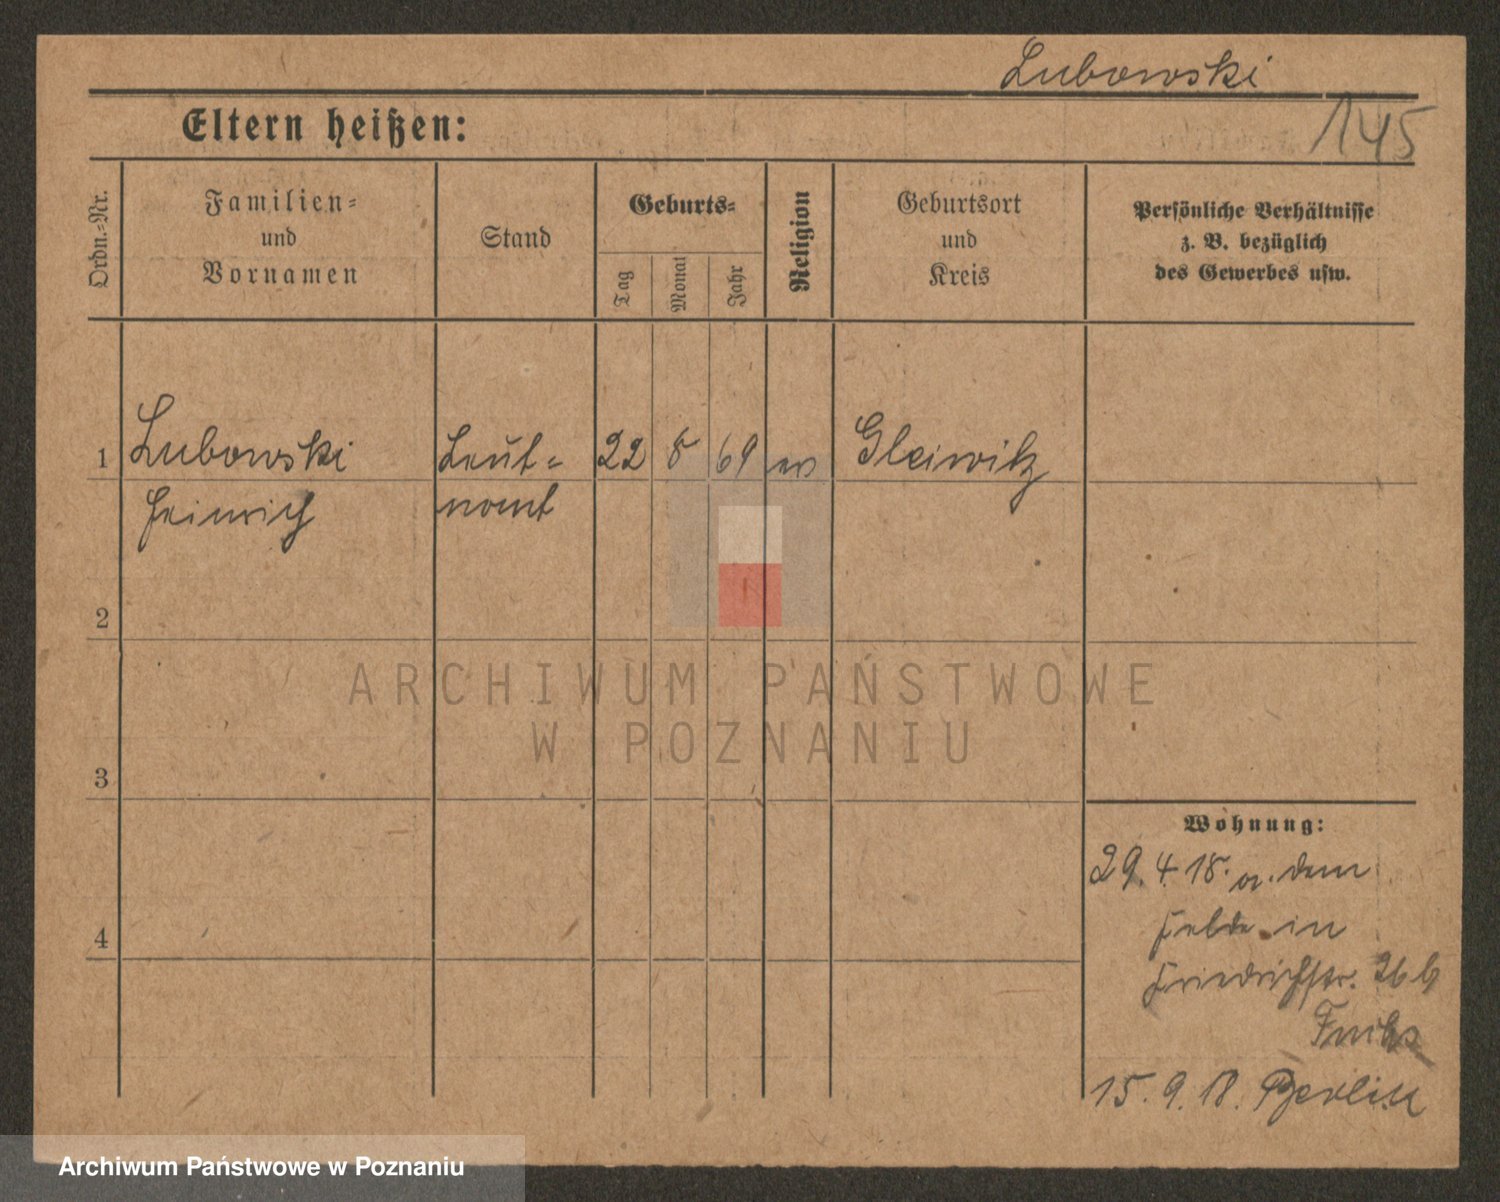 Lubowski
Eltern heißen:
145
Ordn.-Nr.
Familien-
und
Vornamen
Stand
Geburts-
Tag
Monat
Jahr
Religion
Geburtsort
und
Kreis
Persönliche Verhältnisse
z. B. bezüglich
des Gewerbes usw.
1 Lubowski Leut- 22 8 69 ev Gleiwitz
Heinrich nant
2
3
4
Wohnung:
29. 4. 18. a. dem
Felde in
Friedrichstr. 26 b
Fuchs
15. 9. 18. Berlin
ARCHIWUM PAŃSTWOWE
W POZNANIU
Archiwum Państwowe w Poznaniu